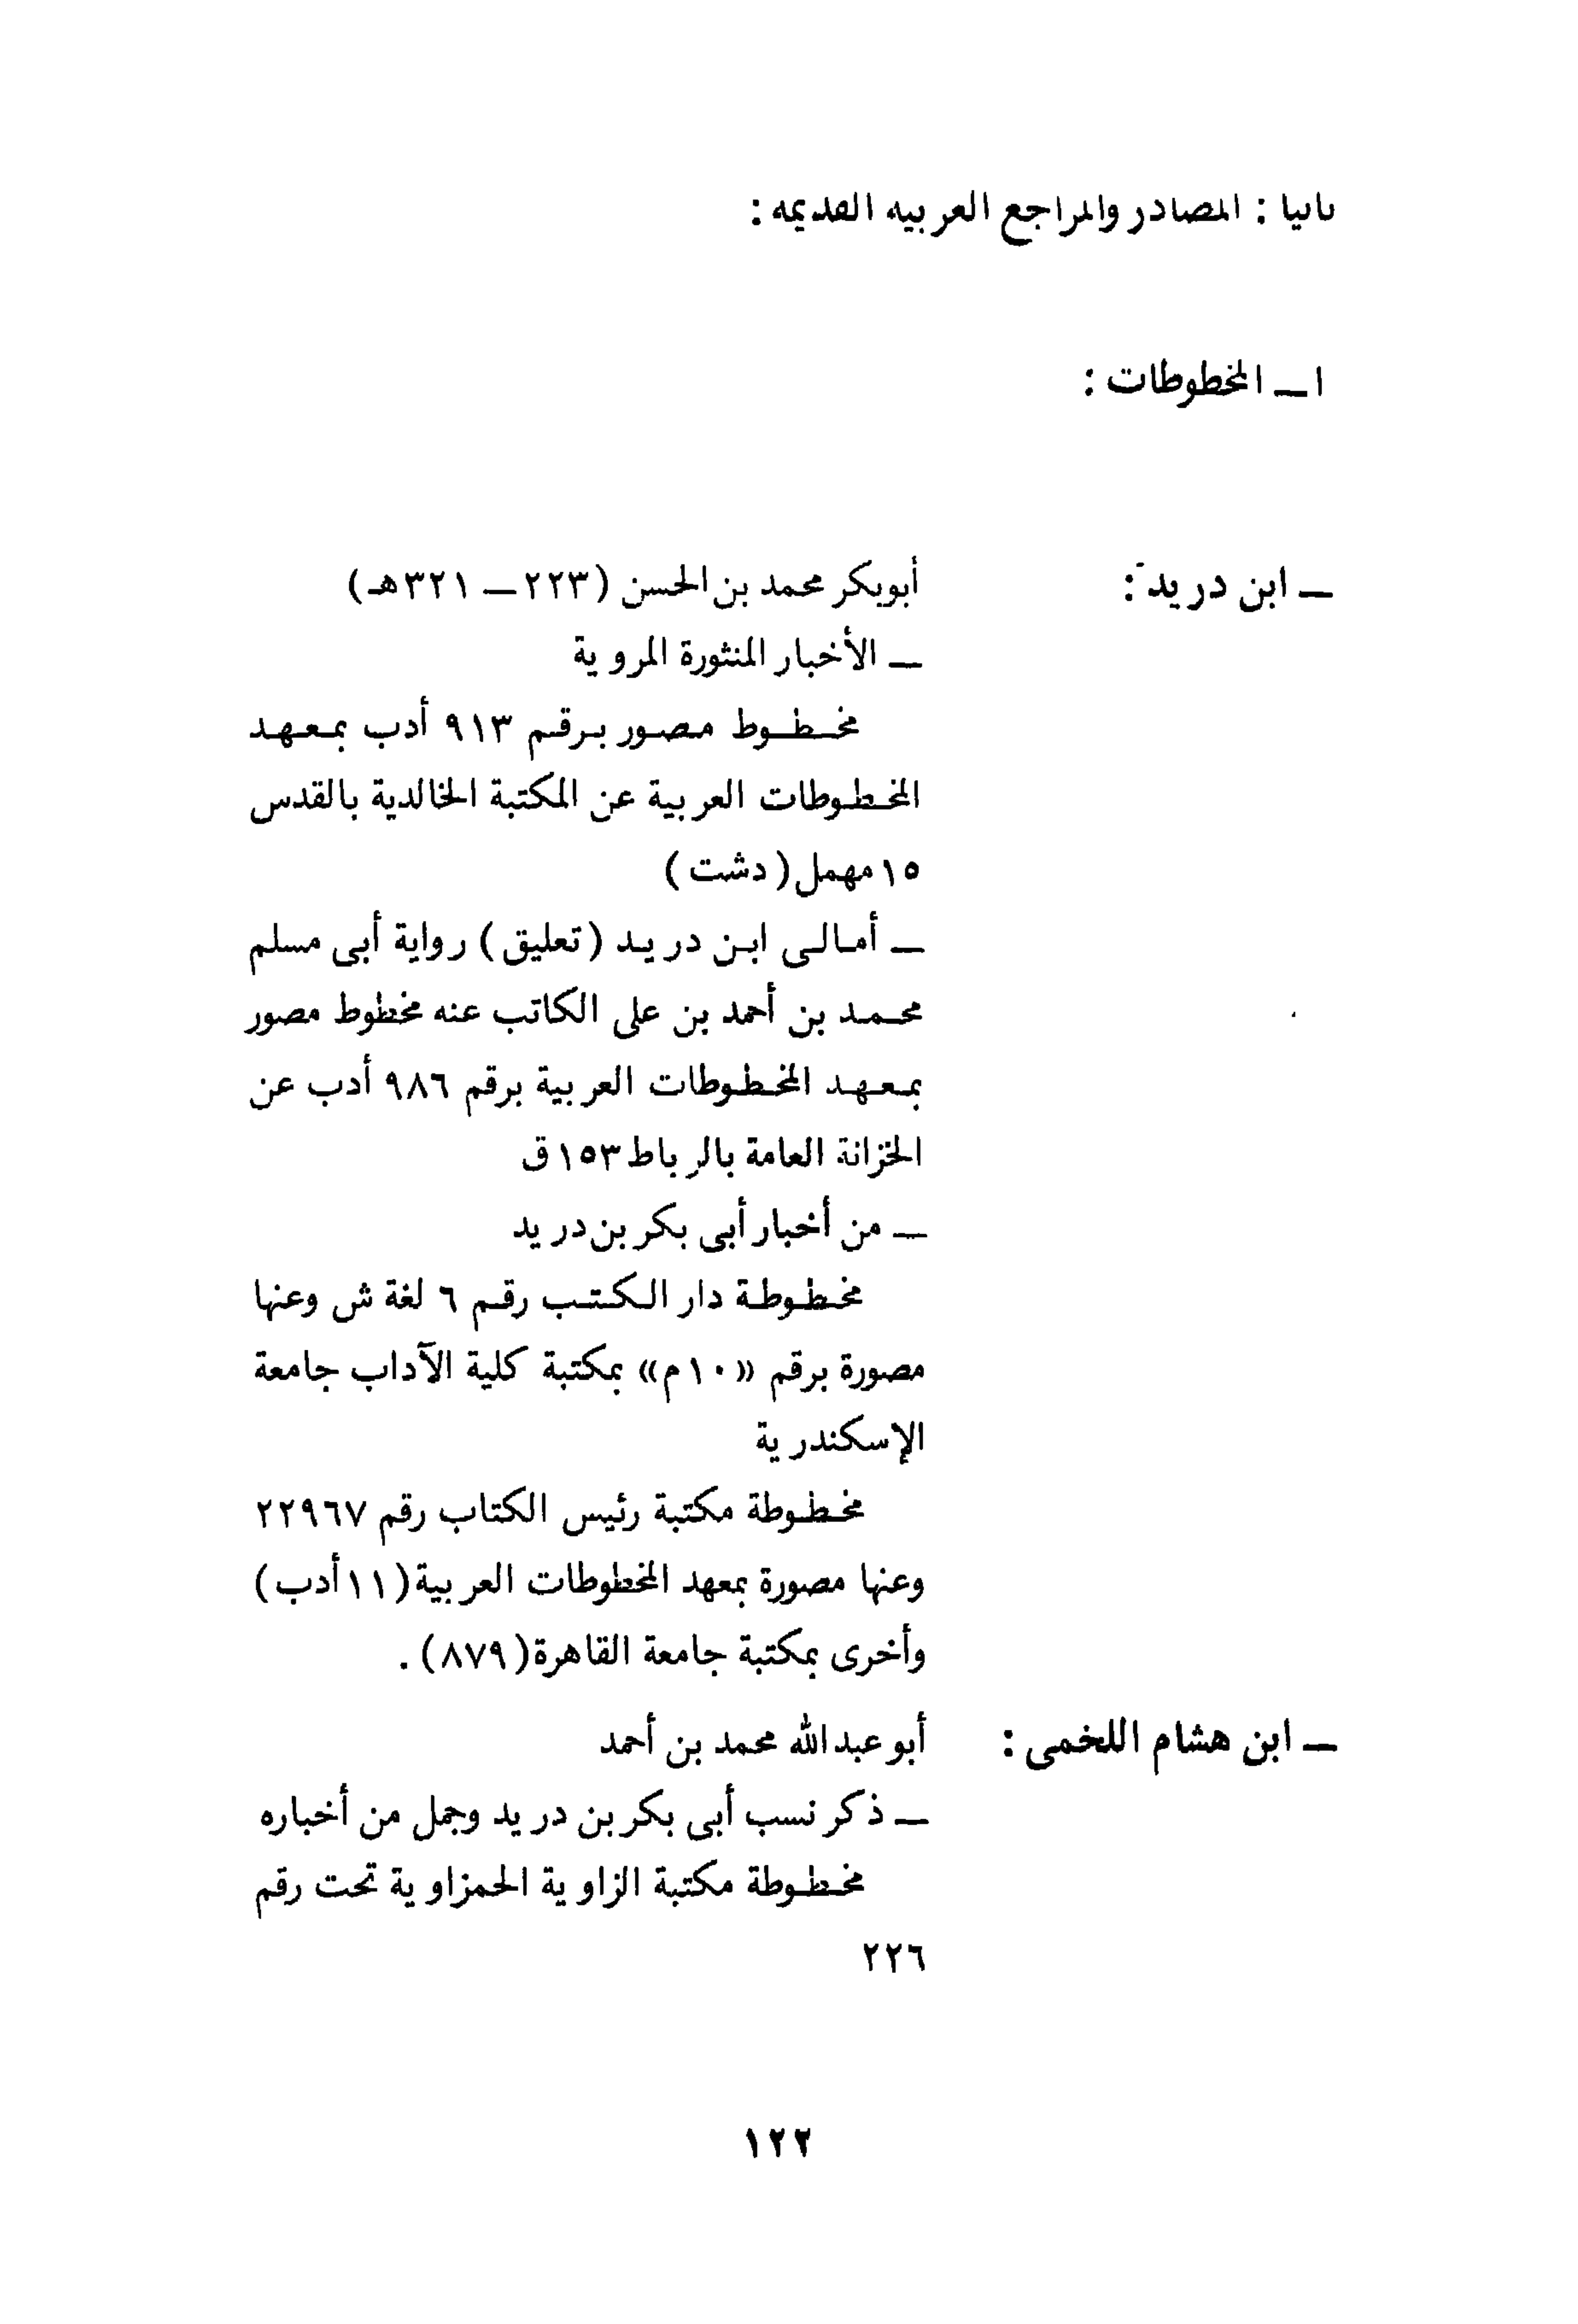 ثانيا : المصادر والمراجع العربية القديمة :
ا — المخطوطات :
— ابن دريد : أبوبكر محمد بن الحسن (٢٢٣ — ٣٢١هـ)
— الأخبار المنثورة المروية
مخطوط مصور برقم ٩١٣ أدب بمعهد
المخطوطات العربية عن المكتبة الخالدية بالقدس
١٥ مهمل (دشت)
— أمالى ابن دريد (تعليق) رواية أبى مسلم
محمد بن أحمد بن على الكاتب عنه مخطوط مصور
بمعهد المخطوطات العربية برقم ٩٨٦ أدب عن
الخزانة العامة بالرباط ١٥٣ ق
— من أخبار أبى بكر بن دريد
مخطوطة دار الكتب رقم ٦ لغة ش وعنها
مصورة برقم «١٠م» بمكتبة كلية الآداب جامعة
الإسكندرية
مخطوطة مكتبة رئيس الكتاب رقم ٢٢٩٦٧
وعنها مصورة بمعهد المخطوطات العربية (١١ أدب)
وأخرى بمكتبة جامعة القاهرة (٨٧٩) .
— ابن هشام اللخمى : أبو عبد الله محمد بن أحمد
— ذكر نسب أبى بكر بن دريد وجمل من أخباره
مخطوطة مكتبة الزاوية الحمزاوية تحت رقم
٢٢٦
١٢٢